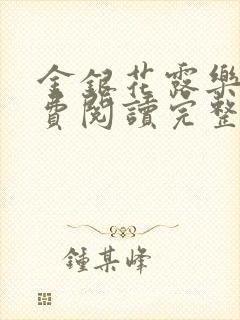 金銀花露樂
費閱讀完整
鍾某峰